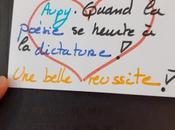 Aupy. Quand la
poésie se heurte à
la dictature !
Une belle réussite !